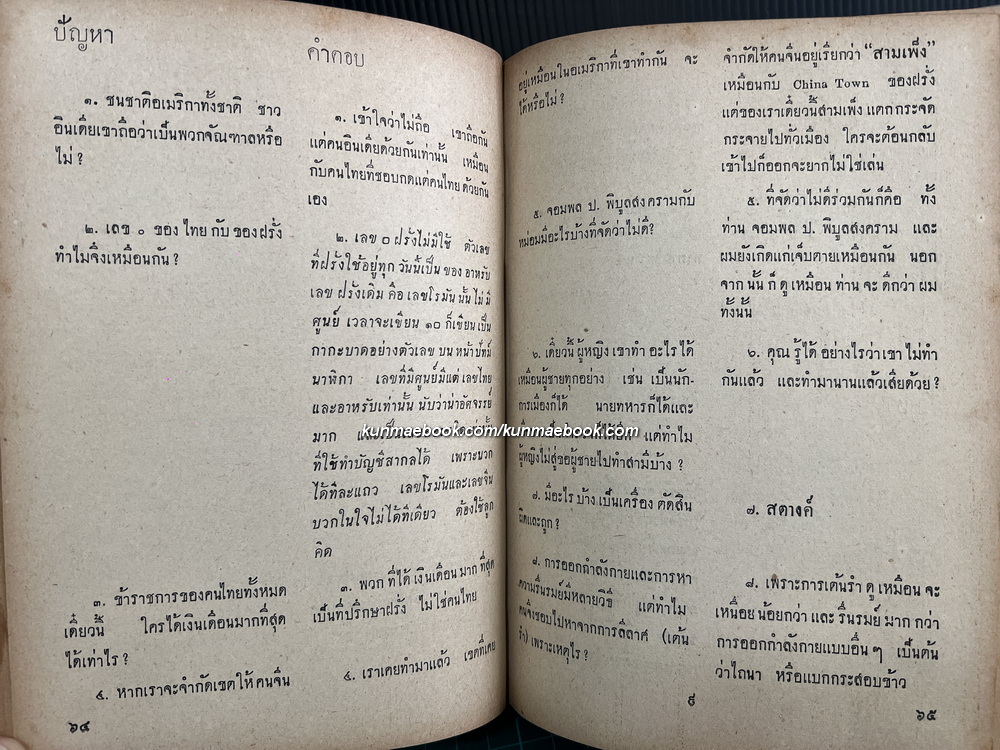 ปัญหา
๑. ชนชาติอเมริกาทั้งชาติ ชาว
อินเดียเขาถือว่าเป็นพวกจัณฑาลหรือ
ไม่ ?
๒. เลข ๐ ของไทย กับ ของฝรั่ง
ทำไมจึงเหมือนกัน ?
๓. ข้าราชการของคนไทยทั้งหมด
เดี๋ยวนี้ ใครได้เงินเดือนมากที่สุด
ได้เท่าไร ?
๔. หากเราจะจำกัดเขตให้คนจีน
๖๔
คำตอบ
๑. เข้าใจว่าไม่ถือ เขาถือกัน
แต่คนอินเดียด้วยกันเท่านั้น เหมือน
กับคนไทยที่ชอบกดแต่คนไทยด้วยกัน
เอง
๒. เลข ๐ ฝรั่งไม่มีใช้ ตัวเลข
ที่ฝรั่งใช้อยู่ทุก วันนี้เป็น ของ อาหรับ
เลข ฝรั่งเดิม คือ เลขโรมัน นั้น ไม่ มี
ศูนย์ เวลาจะเขียน ๑๐ ก็เขียนเป็น
กากะบาดอย่างตัวเลข บน หน้าปัทม์
นาฬิกา เลขที่มีศูนย์มีแต่ เลขไทย
และอาหรับเท่านั้น นับว่าน่าอัศจรรย์
มาก
ที่ใช้ทำบัญชีสากลได้ เพราะบวก
ได้ทีละแถว เลขโรมันและเลขจีน
บวกในใจไม่ได้ทีเดียว ต้องใช้ลูก
คิด
๓. พวก ที่ได้ เงินเดือนมาก ที่สุด
เป็นที่ปรึกษาฝรั่ง ไม่ใช่คนไทย
๔. เราเคยทำมาแล้ว เขตที่เคย
อยู่เหมือนในอเมริกาที่เขาทำกัน จะ
ได้หรือไม่ ?
๕. จอมพล ป. พิบูลสงครามกับ
หม่อมมีอะไรบ้างที่จัดว่าไม่ดี?
๖. เดี๋ยวนี้ ผู้หญิง เขาทำ อะไร ได้
เหมือนผู้ชายทุกอย่าง เช่น เป็นนัก-
การเมืองก็ได้ นายทหารก็ได้และ
แต่ทำไม
ผู้หญิงไม่สู่ขอผู้ชายไปทำสามีบ้าง ?
๗. มีอะไร บ้าง เป็นเครื่อง ตัดสิน
ผิดและถูก ?
๘. การออกกำลังกายและการหา
ความรื่นรมย์มีหลายวิธี แต่ทำไม
คนจึงชอบไปหาจากการลีลาศ (เต้น
รำ) เพราะเหตุไร ?
๙
จำกัดให้คนจีนอยู่เรียกว่า “สามเพ็ง”
เหมือนกับ China Town ของฝรั่ง
แต่ของเราเดี๋ยวนี้สามเพ็ง แตกกระจัด
กระจายไปทั่วเมือง ใครจะต้อนกลับ
เข้าไปก็ออกจะยากไม่ใช่เล่น
๕. ที่จัดว่าไม่ดีร่วมกันก็คือ ทั้ง
ท่าน จอมพล ป. พิบูลสงคราม และ
ผมยังเกิดแก่เจ็บตายเหมือนกัน นอก
จาก นั้น ก็ ดู เหมือน ท่าน จะ ดีกว่า ผม
ทั้งนั้น
๖. คุณ รู้ได้ อย่างไรว่า เขา ไม่ทำ
กันแล้ว และทำมานานแล้วเสียด้วย ?
๗. สตางค์
๘. เพราะการเต้นรำ ดู เหมือน จะ
เหนื่อย น้อยกว่า และ รื่นรมย์ มาก กว่า
การออกกำลังกายแบบอื่น ๆ เป็นต้น
ว่าไถนา หรือแบกกระสอบข้าว
๖๕
kunmaebook.com/kunmaebook.com